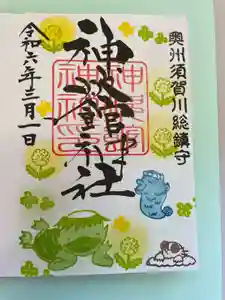 奥州須賀川総鎮守
神炊館神社
令和六年三月一日